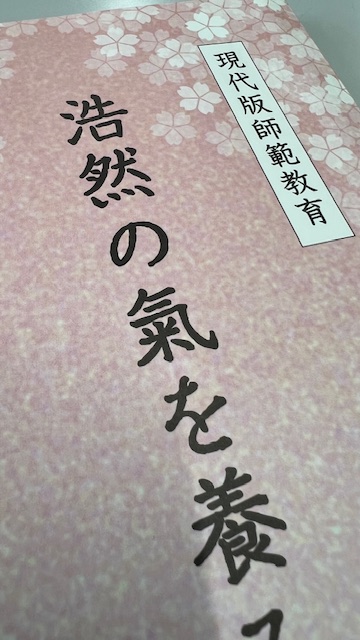 現代版師範教育
浩然の氣を養